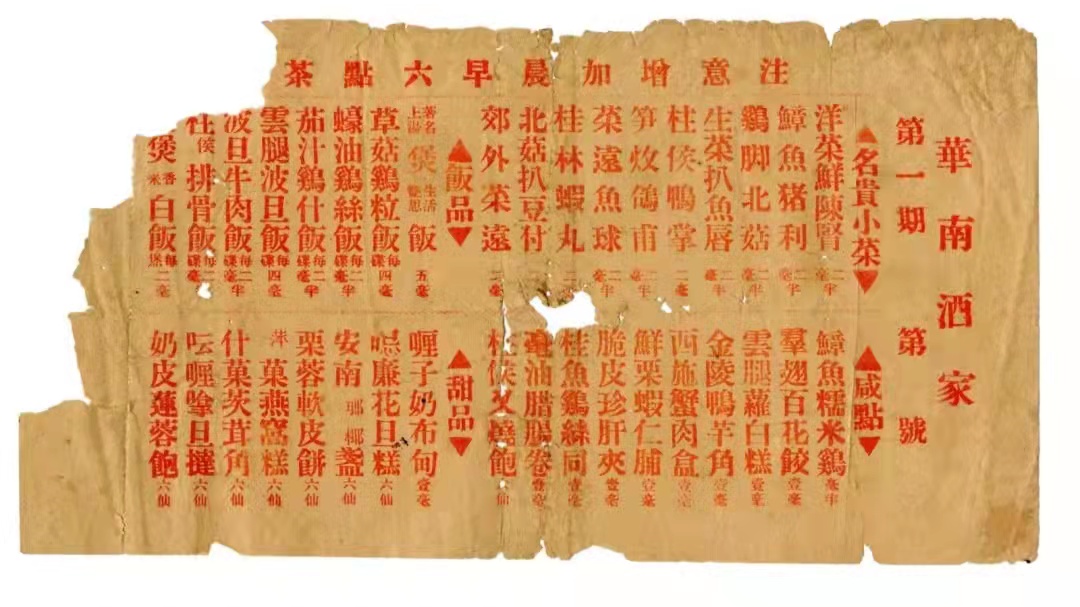 華南酒家
第一期 第 號
注意增加晨早六點茶
▲名貴小菜▼
洋菜鮮陳腎 二毫半
鱆魚猪利 二毫半
鷄脚北菇 二毫半
生菜扒魚唇 二毫半
柱侯鴨掌 二毫半
笋炆鴿甫 二毫
菜遠魚球 二毫半
桂林蝦丸 二毫
北菇扒豆付
郊外菜遠 二毫
▲飯品▼
著名上湯煲飯 五毫
草菇鷄粒飯 每碟四毫
蠔油鷄絲飯 每碟二毫半
茄汁鷄什飯 每碟二毫半
雲腿波旦飯 每碟四毫
波旦牛肉飯 每碟二毫半
柱侯排骨飯 每碟二毫
煲香米白飯 每煲二毫
▲咸點▼
鱆魚糯米鷄 毫半
羣翅百花餃 壹毫
雲腿蘿白糕 壹毫
金陵鴨芋角 壹毫
西施蟹肉盒 壹毫
鮮栗蝦仁脯 壹毫
脆皮珍肝夾 壹毫
桂魚鷄絲同 壹毫
毫油腊腸卷 壹毫
柱侯叉燒飽 六仙
▲甜品▼
喱子奶布甸 壹毫
廉花旦糕 六仙
安南椰盞 六仙
栗蓉軟皮餅 六仙
菓燕窩糕 六仙
什菓茨茸角 六仙
喱嗱旦撻 六仙
奶皮蓮蓉飽 六仙